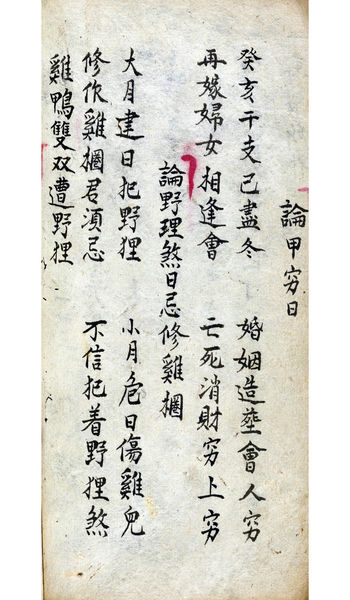 論甲穷日
癸亥干支己盡冬 婚姻造塟會人穷
再嫁婦女相逢會 亡死消財穷上穷
論野理煞日忌修雞棞
大月建日犯野狸 小月危日傷雞兒
修作雞棞君須忌 不信犯着野狸煞
雞鴨雙双遭野狸